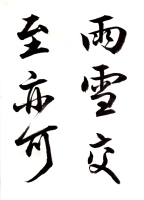 雨雪交
至亦可